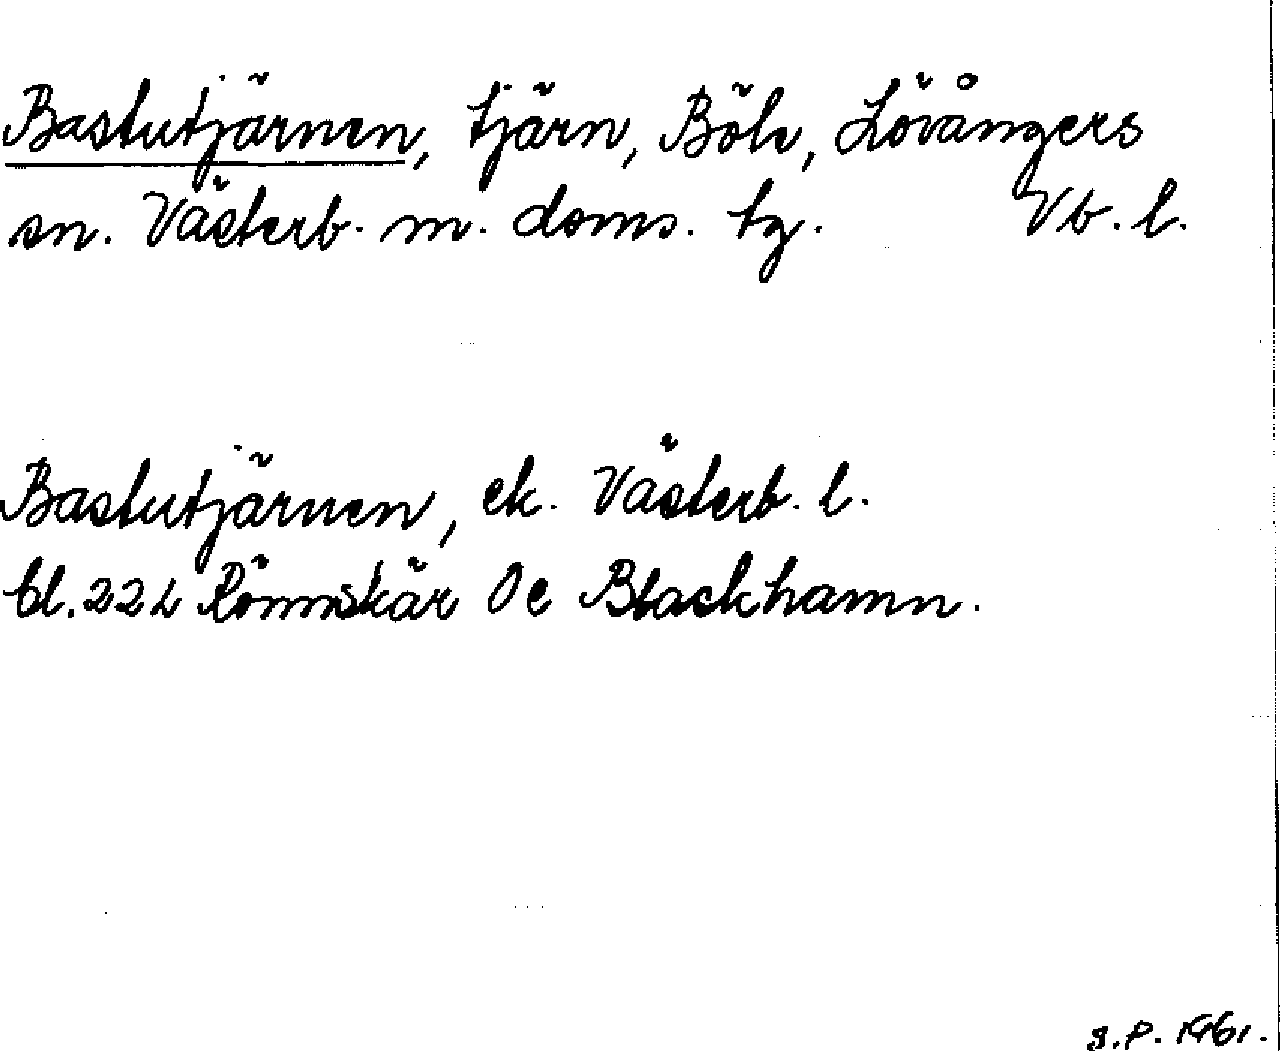 Bastutjärnen, tjärn, Böle, Lövångers
sn. Västerb. m. doms. tg. Vb. l.
Bastutjärnen, ek. Västerb. l.
bl. 22 L Rönnskär Oc Blackhamn.
S.P. 1961.